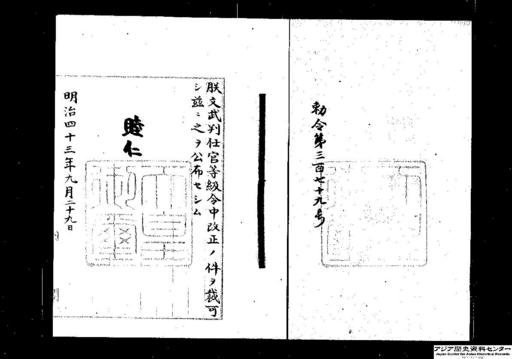 勅令第三百七十九号
朕文武判任官等級令中改正ノ件ヲ裁可
シ茲ニ之ヲ公布セシム
睦仁
明治四十三年九月二十九日
天皇
御璽
アジア歴史資料センター
Japan Center for Asian Historical Records